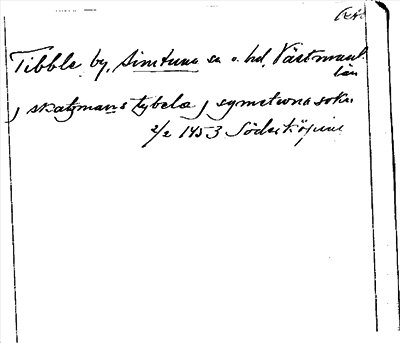 Tibble by, Simtuna sn o. hd, Västmanl.
län
j skatzmans tybela j symetuna sokn
2/2 1453 Söderköping